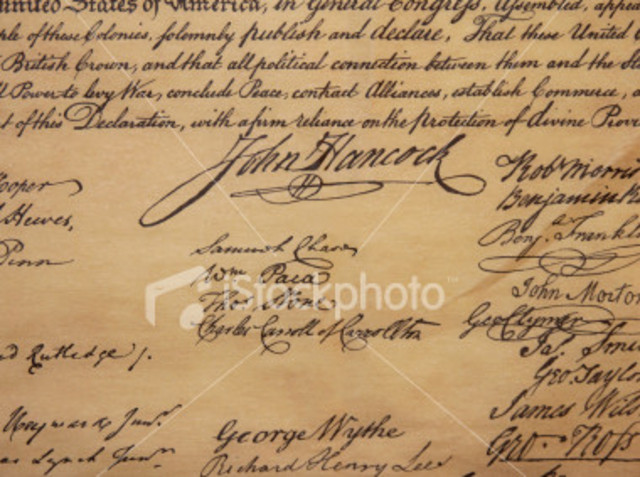 United States of America, in General Congress, Assembled, appea
ple of these Colonies, solemnly publish and declare, That these United C
British Crown, and that all political connection between them and the Sta
Power to levy War, conclude Peace, contract Alliances, establish Commerce, a
t of this Declaration, with a firm reliance on the protection of divine Provi
John Hancock
H
ooper
Hewes,
Penn
d Rutledge Jr.
Heyward Junr.
as Lynch Junr.
Samuel Chase
Wm. Paca
Thos. Stone
Charles Carroll of Carrollton
George Wythe
Richard Henry Lee
Robt Morris
Benjamin R
Benj. Frankli
John Morton
Geo Clymer
Jas. Smi
Geo. Taylo
James Wils
Geo. Ross
iStockphoto